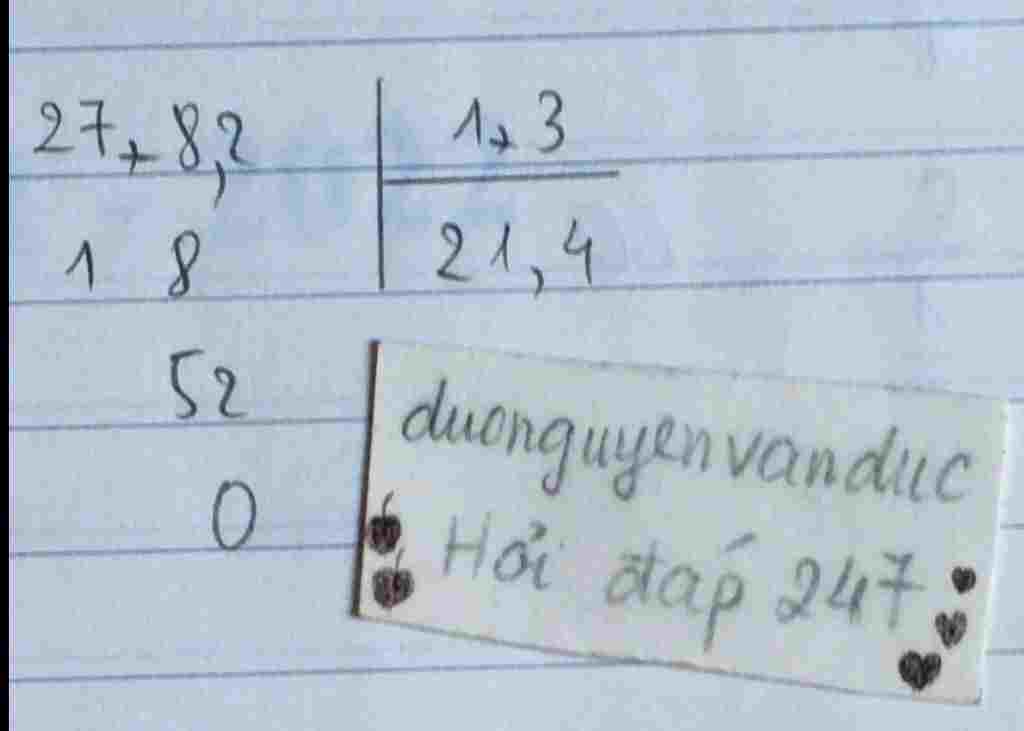 27,8,2 1,3
1 8 21,4
52
0
duonguyenvanduc
Hỏi đáp 247